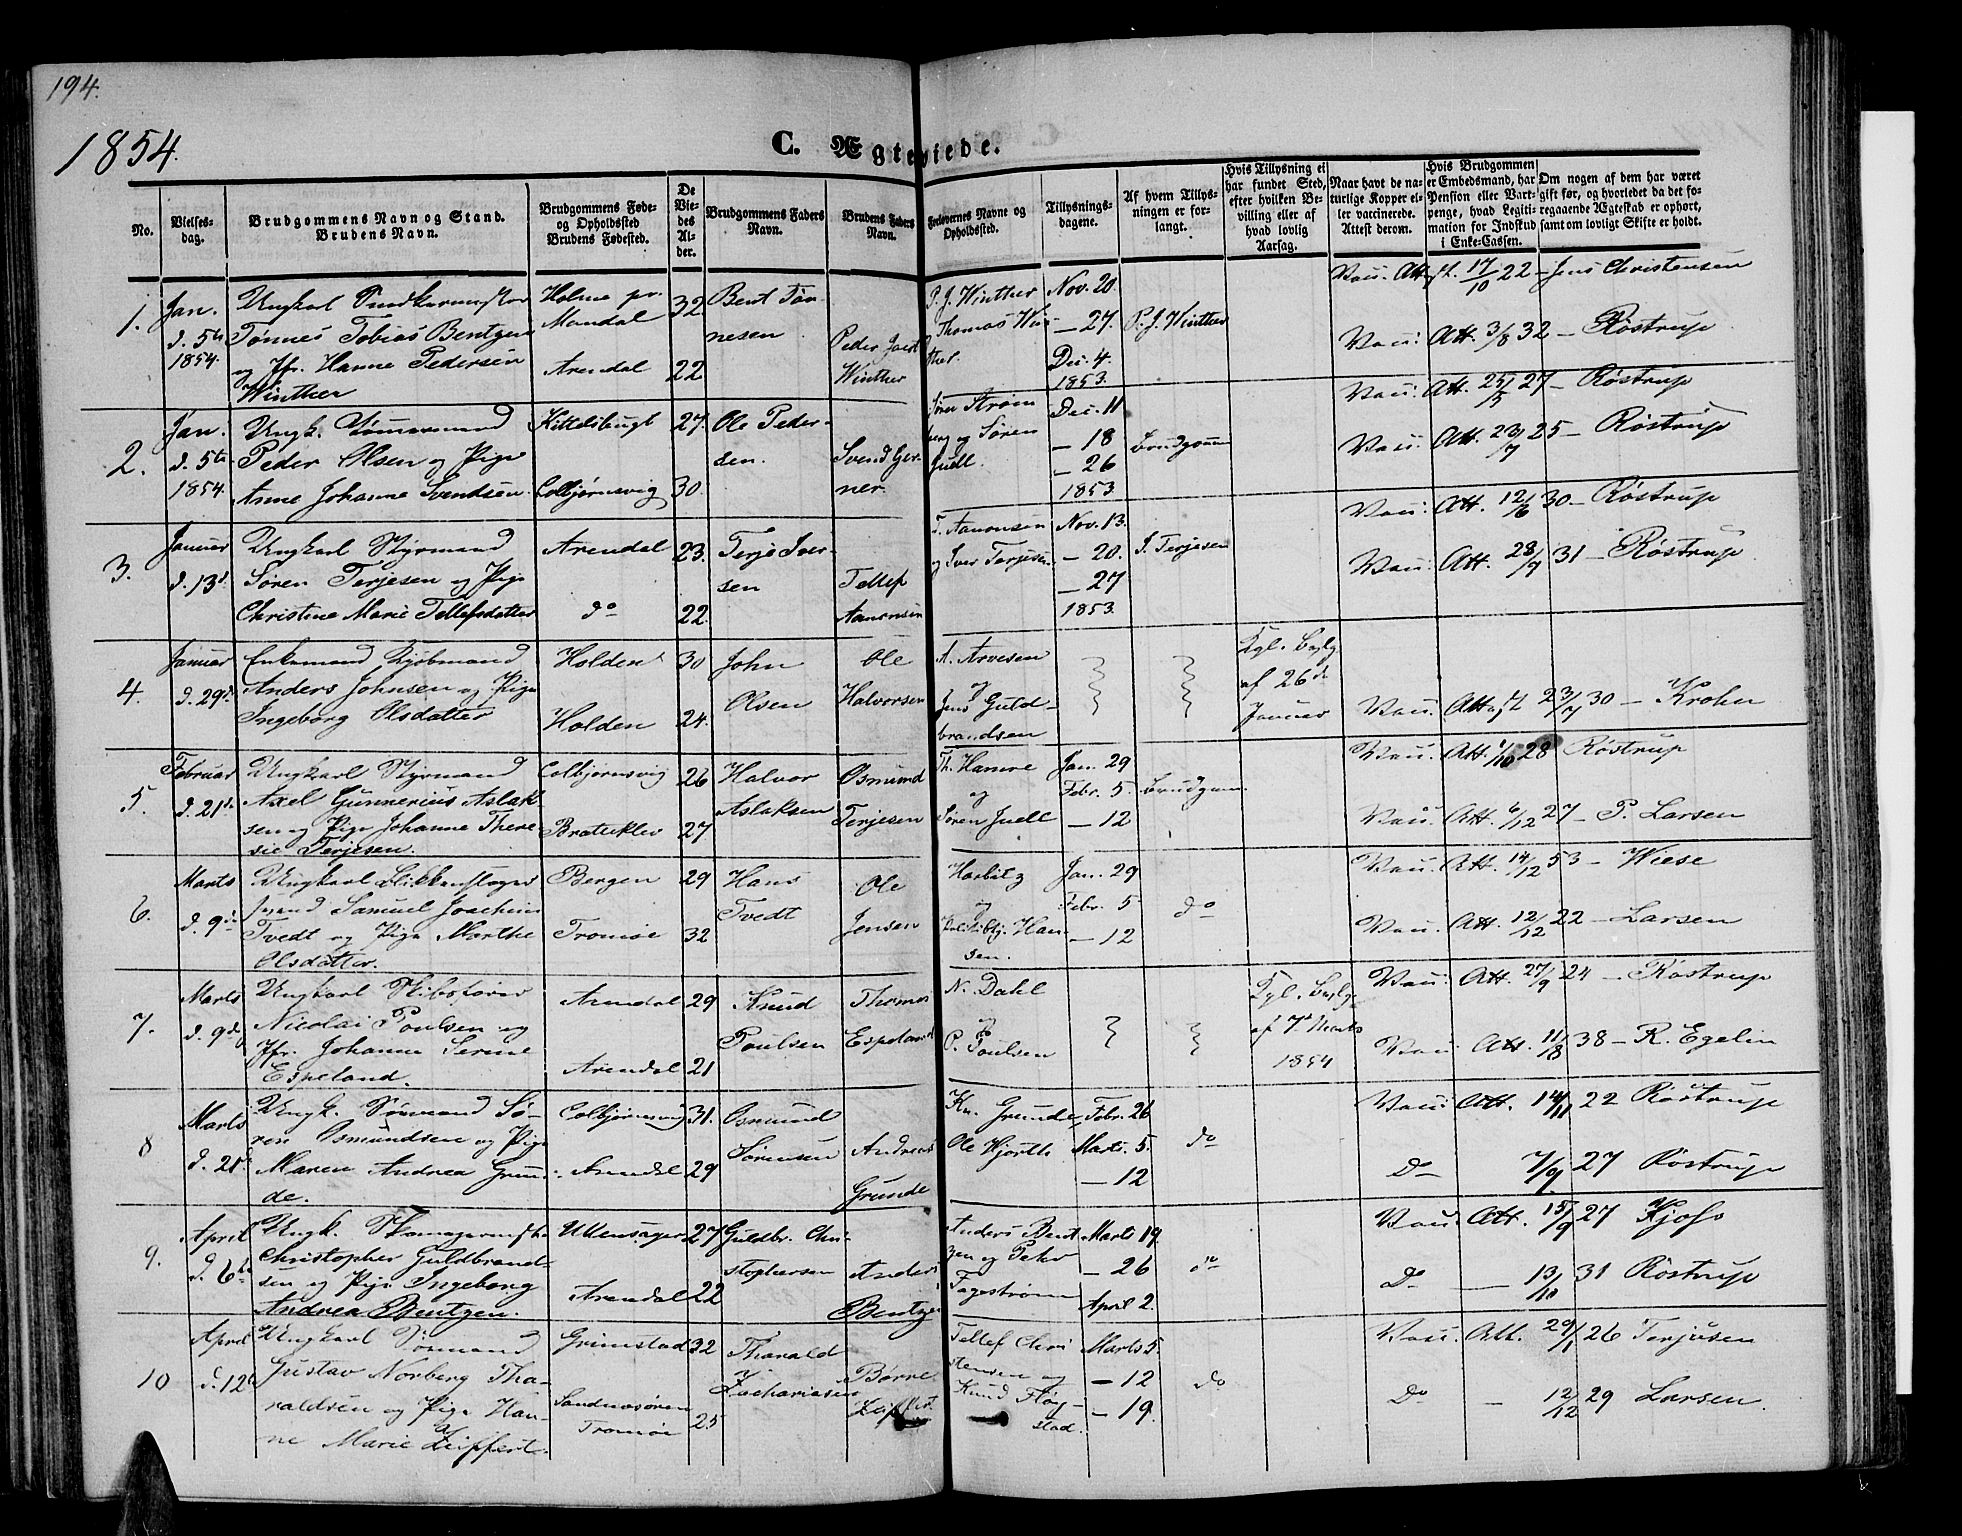 194.
1854.
C. Ægteviede.
No.
Vielses-
dag.
Brudgommens Navn og Stand.
Brudens Navn.
Brudgommens Føde-
og Opholdssted
Brudens Fødested.
De
Vie-
des
Al-
der.
Brudgommens Faders
Navn.
Brudens Faders
Navn.
Forlovernes Navne og
Opholdssted.
Tillysnings-
dagene.
Af hvem Tillys-
ningen er for-
langt.
Hvis Tillysning ei
har fundet Sted,
efter hvilken Be-
villing eller af
hvad lovlig
Aarsag.
Naar havt de na-
turlige Kopper el-
ler vaccinerede.
Attest derom.
Hvis Brudgommen
er Embedsmand, har
Pension eller Vart-
penge, hvad Legiti-
mation for Indskud
i Enke-Cassen.
Om nogen af dem har været
gift før, og hvorledet da det fo-
regaaende Ægteskab er ophørt,
samt om lovligt Skifte er holdt.
1.
Jan.
d. 5te
1854.
Ungkal
Tønnes Tobias Bentzen
og Jfr. Hanne Pedersen
Winther
Holme pr.
Mandal
Arendal
32.
22.
Bent Tøn-
nesen
Peder
Winther
P. J. Winther
Thomas Win-
ther.
Nov. 20.
- 27.
Dec. 4.
1853.
P. J. Winther
Vau. Att. 17/10 22 - Jens Christensen
Vau: Att. 3/8 32 - Röstrup
2.
Jan.
d. 5te
1854.
Ungk. Tømmermand
Peder Olsen og Pige
Anne Johanne Svendsen.
Kittelsbugt
Colbjørnsvig
27.
30.
Ole Peder-
sen.
Svend Ger-
ner.
Søren Strøm
berg og Søren
Juell.
Dec. 11
- 18
- 26
1853.
Brudgomm
Vau: Att. 25/5 27 - Röstrup
Vau: Att. 23/7 25 - Röstrup
3.
Januar
d. 13d.
Ungkarl Styrmand
Søren Terjesen og Pige
Christine Marie Tellefsdatter
Arendal
do
23.
22.
Terje Iver-
sen
Tellef
Aanonsen
T. Aanonsen
og Iver Terjesen.
Nov. 13.
- 20.
- 27
1853.
I. Terjesen
Vau: Att. 12/6 30 - Röstrup
Vau: Att. 28/9 31 - Röstrup
4.
Januar
d. 29d.
Enkemand Kjøbmand
Anders Johnsen og Pige
Ingeborg Olsdatter
Holden
Holden
30
24.
John
Olsen
Ole
Halvorsen
A. Arvesen
og
Jens Guld-
brandsen
Kgl. Bevlg
af 26d
Januar
Vau. Att. 23/7 30 - Krohn
5.
Februar
d. 21d.
Ungkarl Styrmand
Axel Gunnerius Aslak
sen og Pige Johanne There
sie Terjesen.
Colbjørnsvig
Bratteklev
26
27
Halvor
Aslaksen
Osmund
Terjesen
Th. Hamre
og
Søren Juell
Jan. 29
Febr. 5.
- 12
Brudgom.
Vau. Att. 1/10 28 Röstrup
Vau. Att. 6/12 27 - P. Larsen
6.
Marts
d. 9de
Ungkarl Blikkenslager
svend Samuel Joachim
Tvedt og Pige Marthe
Olsdatter.
Bergen
Tromöe
29
32
Hans
Tvedt
Ole
Jensen
Harbitz
og
Han-
sen.
Jan. 29
Febr. 5
- 12
do
Vau: Att. 14/12 53 - Wiese
Vau. Att. 12/12 22 - Larsen
7.
Marts
d. 9d
Ungkarl Skibsfører
Nicolai Poulsen og
Jfr. Johanne Serine
Espeland.
Arendal
Arendal
29
21
Knud
Poulsen
Thomas
Espeland
N. Dahl
og
P. Poulsen
Kgl. Bevlg
af 7d Marts
1854
Vau: Att. 27/9 24 - Röstrup
Vau: Att. 11/8 38 - R. Egelin
8
Marts
d. 21d
Ungk. Sømand Sø-
ren Osmundsen og Pige
Maren Andrea Grun-
de.
Colbjørnsvig
Arendal
31.
29
Osmund
Sørensen
Andreas
Grunde
Kn. Grunde
Ole Hjorth
Febr. 26
Marts. 5.
- 12
do
Vau: Att. 14/11 22 Röstrup
Do 7/9 27 Röstrup
9.
April
d. 6te
Ungk. Skomagermester
Christopher Guldbrand-
sen og Pige Ingeborg
Andrea Bentzen.
Ullensager
Arendal
27
22
Guldbr. Chri-
stophersen
Anders
Bentzen
Anders Bent
zen og Peter
Fagestrøm
Marts 19.
- 26
April 2.
do
Vau: Att. 15/9 27 Kjofs
Do - 13/10 31 Röstrup
10
April
d. 12t
Ungkarl Sømand
Gustav Norberg Tha-
raldsen og Pige Han-
ne Marie Zeiffert.
Grimstad
Sandnæsøren
Tromöe
32
25
Tharald
Zachariasen
Børre
Tellef Chri
stensen og
Knud Fløy-
stad.
Marts 5.
- 12
- 19.
do
Vau: Att. 29/1 26 Terjusen
Do - 12/12 29 Larsen.